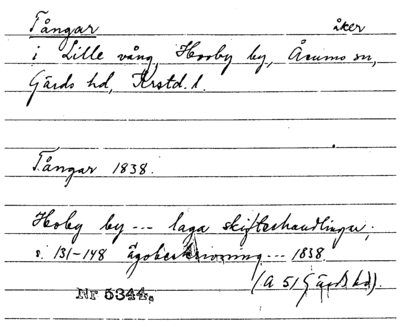 Tångar åker
i Lille vång, Horby by, Åsums sn,
Gärds hd, Krstd. l.
Tångar 1838.
Hoby by --- laga skifteshandlingar,
s. 131-148 ägobeskrivning --- 1838
(A 51 Gärds hd).
Nr 5344.